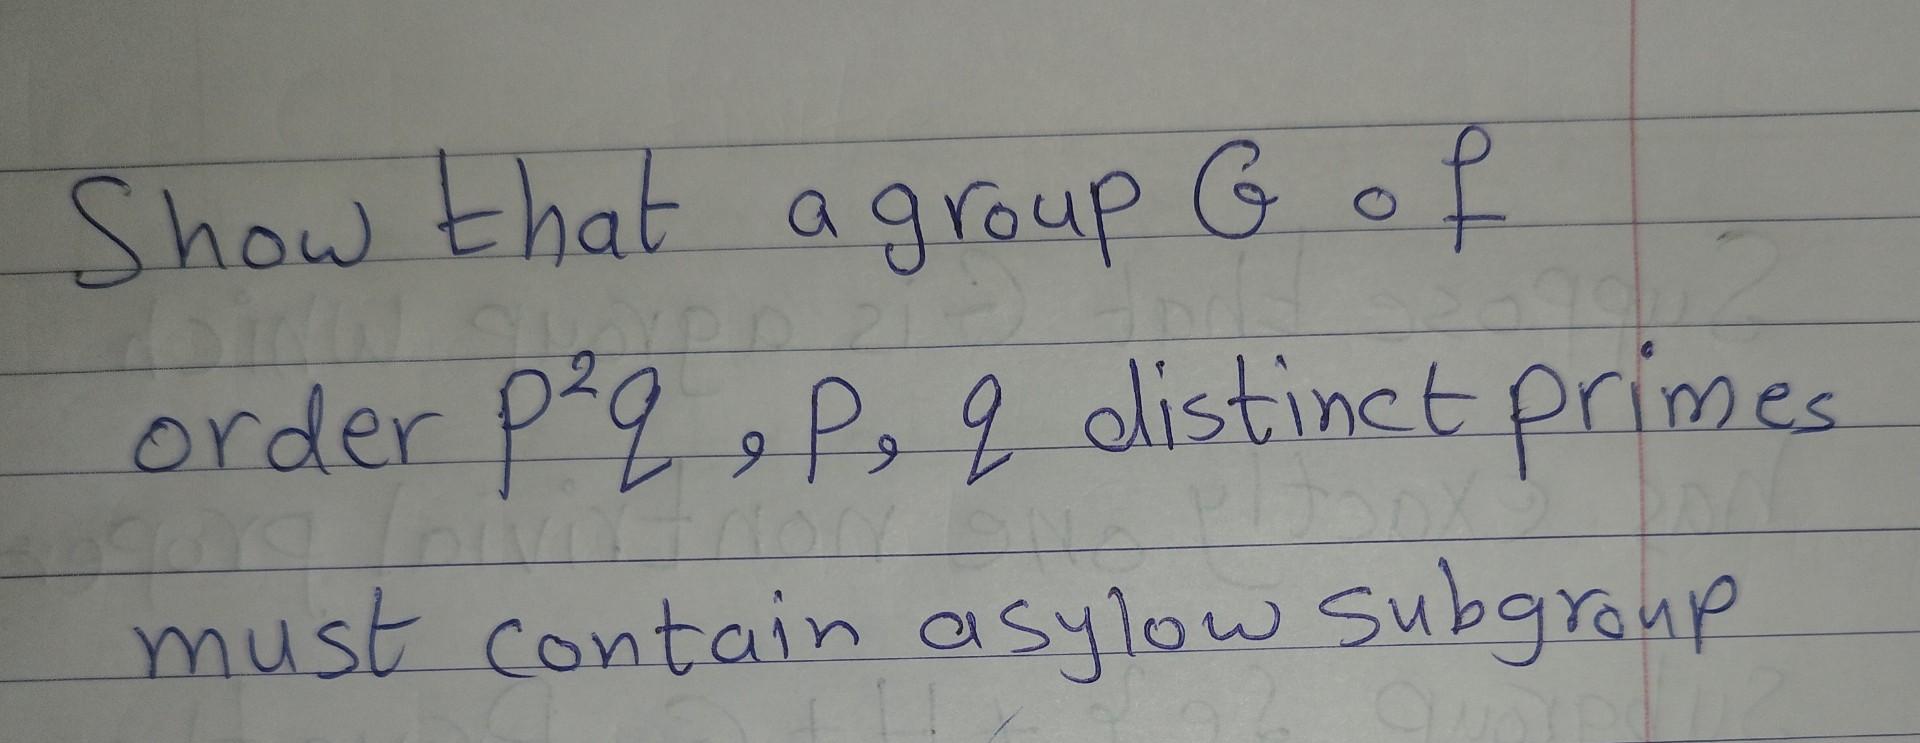 Show that a group G of
order p²q, p, q distinct primes
must contain a sylow subgroup